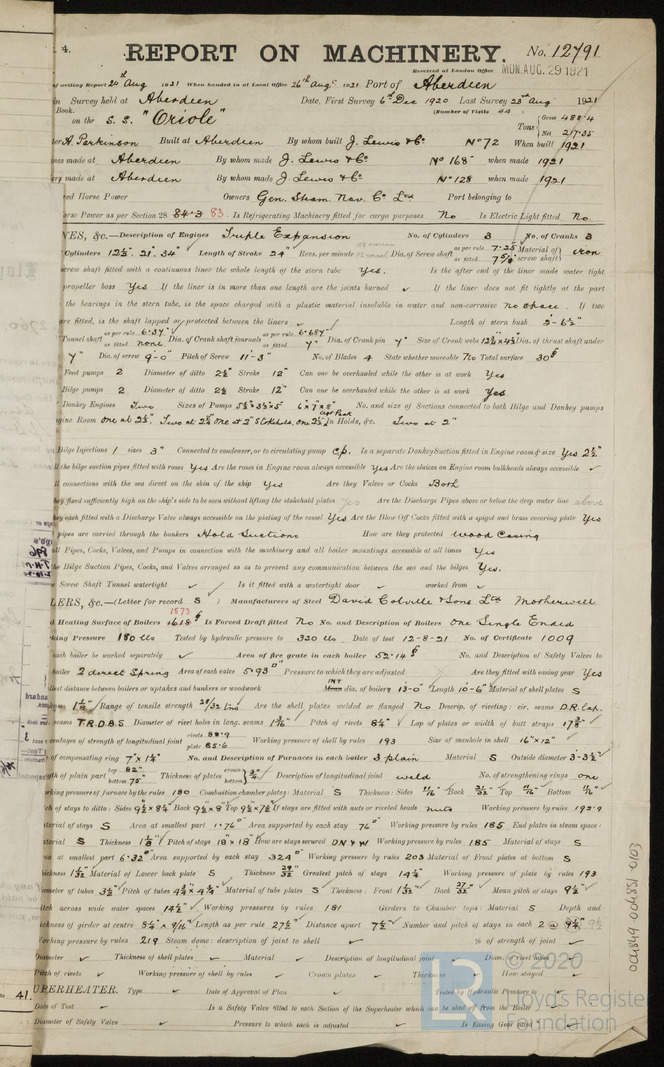 4. REPORT ON MACHINERY. No. 12791
Received at London Office MON. AUG. 29 1921
of writing Report 24th Aug 1921 When handed in at Local Office 26th Aug 1921 Port of Aberdeen
in Survey held at Aberdeen Date, First Survey 6th Dec 1920 Last Survey 23rd Aug 1921
Book. (Number of Visits 44)
on the S.S. "Oriole" Tons { Gross 488.4 Net 217.35
A. Parkinson Built at Aberdeen By whom built J. Lewis & Co No 72 When built 1921
nes made at Aberdeen By whom made J. Lewis & Co No 168 when made 1921
made at Aberdeen By whom made J. Lewis & Co No 128 when made 1921
ed Horse Power Owners Gen. Steam Nav. Co Ltd Port belonging to
orse Power as per Section 28 84.3 83. Is Refrigerating Machinery fitted for cargo purposes No Is Electric Light fitted No.
NES, &c.—Description of Engines Triple Expansion No. of Cylinders 3 No. of Cranks 3
Cylinders 12½". 21". 34" Length of Stroke 24" Revs. per minute Dia. of Screw shaft as per rule 7.25 as fitted 7⅝" Material of screw shaft } iron
screw shaft fitted with a continuous liner the whole length of the stern tube Yes. Is the after end of the liner made water tight
propeller boss Yes. If the liner is in more than one length are the joints burned ✓ If the liner does not fit tightly at the part
the bearings in the stern tube, is the space charged with a plastic material insoluble in water and non-corrosive No space. If two
are fitted, is the shaft lapped or protected between the liners ✓ Length of stern bush 2-6½"
Tunnel shaft as per rule 6.37" as fitted none. Dia. of Crank shaft journals as per rule 6.687" as fitted 7" Dia. of Crank pin 7" Size of Crank webs Dia. of thrust shaft under
7" Dia. of screw 9-0" Pitch of Screw 11-3" No. of Blades 4 State whether moveable No Total surface 30
Feed pumps 2 Diameter of ditto 2½" Stroke 12" Can one be overhauled while the other is at work Yes
Bilge pumps 2 Diameter of ditto 2½ Stroke 12" Can one be overhauled while the other is at work Yes.
Donkey Engines Two Sizes of Pumps 5½"×3½"×5" 6"×7"×8" No. and size of Suctions connected to both Bilge and Donkey pumps
gine Room One at 2½". Two at 2¼ One at 2" Stokehold, one 2½ Aft Peak In Holds, &c. Two at 2"
Bilge Injections 1 sizes 3" Connected to condenser, or to circulating pump C.P. Is a separate Donkey Suction fitted in Engine room & size Yes 2½"
the bilge suction pipes fitted with roses Yes Are the roses in Engine room always accessible Yes Are the sluices on Engine room bulkheads always accessible ✓
connections with the sea direct on the skin of the ship Yes Are they Valves or Cocks Both
they fixed sufficiently high on the ship's side to be seen without lifting the stokehold plates yes Are the Discharge Pipes above or below the deep water line above
they each fitted with a Discharge Valve always accessible on the plating of the vessel Yes Are the Blow Off Cocks fitted with a spigot and brass covering plate Yes
pipes are carried through the bunkers Hold Suctions How are they protected Wood Casing
all Pipes, Cocks, Valves, and Pumps in connection with the machinery and all boiler mountings accessible at all times Yes
the Bilge Suction Pipes, Cocks, and Valves arranged so as to prevent any communication between the sea and the bilges Yes.
Screw Shaft Tunnel watertight ✓ Is it fitted with a watertight door ✓ worked from ✓
LERS, &c.—(Letter for record S) Manufacturers of Steel David Colville & Sons Ltd Motherwell
Heating Surface of Boilers 1618 1573 Is Forced Draft fitted No No. and Description of Boilers One Single Ended
king Pressure 180 lbs Tested by hydraulic pressure to 320 lbs Date of test 12-8-21 No. of Certificate 1009
each boiler be worked separately ✓ Area of fire grate in each boiler 52.14 No. and Description of Safety Valves to
boiler 2 direct Spring Area of each valve 5.93 Pressure to which they are adjusted Are they fitted with easing gear Yes
llest distance between boilers or uptakes and bunkers or woodwork INT dia. of boilers 13-0" Length 10-6" Material of shell plates S
1⅛" Range of tensile strength 28/32 tons Are the shell plates welded or flanged No Descrip. of riveting: cir. seams D.R. Lap.
seams T.R.D.B.S Diameter of rivet holes in long. seams 1 3/16" Pitch of rivets 8¼" Lap of plates or width of butt straps 17⅜"
centages of strength of longitudinal joint rivets 88.9 plate 85.6 Working pressure of shell by rules 193 Size of manhole in shell 16"×12"
of compensating ring 7"×1⅛" No. and Description of Furnaces in each boiler 3 plain Material S Outside diameter 3-3½"
gth of plain part top 82" bottom 75" Thickness of plates crown bottom } ¾" Description of longitudinal joint weld No. of strengthening rings one
king pressure of furnace by the rules 180 Combustion chamber plates: Material S Thickness: Sides Back Top Bottom
h of stays to ditto: Sides 9½"×8¾" Back 9½"×8" Top 9½"×7½" If stays are fitted with nuts or riveted heads nuts Working pressure by rules 192.9
terial of stays S Area at smallest part 1.76" Area supported by each stay 76" Working pressure by rules 185 End plates in steam space:
terial S Thickness 1⅛" Pitch of stays 18"×18" How are stays secured DN&W Working pressure by rules 185 Material of stays S
ea at smallest part 6.32" Area supported by each stay 324" Working pressure by rules 203 Material of Front plates at bottom S
hickness Material of Lower back plate S Thickness 29/32 Greatest pitch of stays 14¼" Working pressure of plate by rules 193
meter of tubes 3½" Pitch of tubes 4¾×4¾" Material of tube plates S Thickness: Front Back 27/32 Mean pitch of stays 9½"
tch across wide water spaces 14½" Working pressures by rules 181 Girders to Chamber tops: Material S Depth and
ckness of girder at centre 8¼"×9/16" Length as per rule 27½" Distance apart 7½" Number and pitch of stays in each 2 @ 9¼"
orking pressure by rules 219 Steam dome: description of joint to shell ✓ % of strength of joint ✓
Diameter ✓ Thickness of shell plates ✓ Material ✓ Description of longitudinal joint ✓ Diam. of rivet holes
Pitch of rivets ✓ Working pressure of shell by rules ✓ Crown plates ✓ Thickness ✓ How stayed ✓
UPERHEATER. Type ✓ Date of Approval of Plan ✓ Tested by Hydraulic Pressure to ✓
Date of Test ✓ Is a Safety Valve fitted to each Section of the Superheater which can be shut off from the Boiler ✓
Diameter of Safety Valve ✓ Pressure to which each is adjusted ✓ Is Easing Gear fitted ✓
41.
004849 004851-0103
© 2020
Lloyd's Register
Foundation